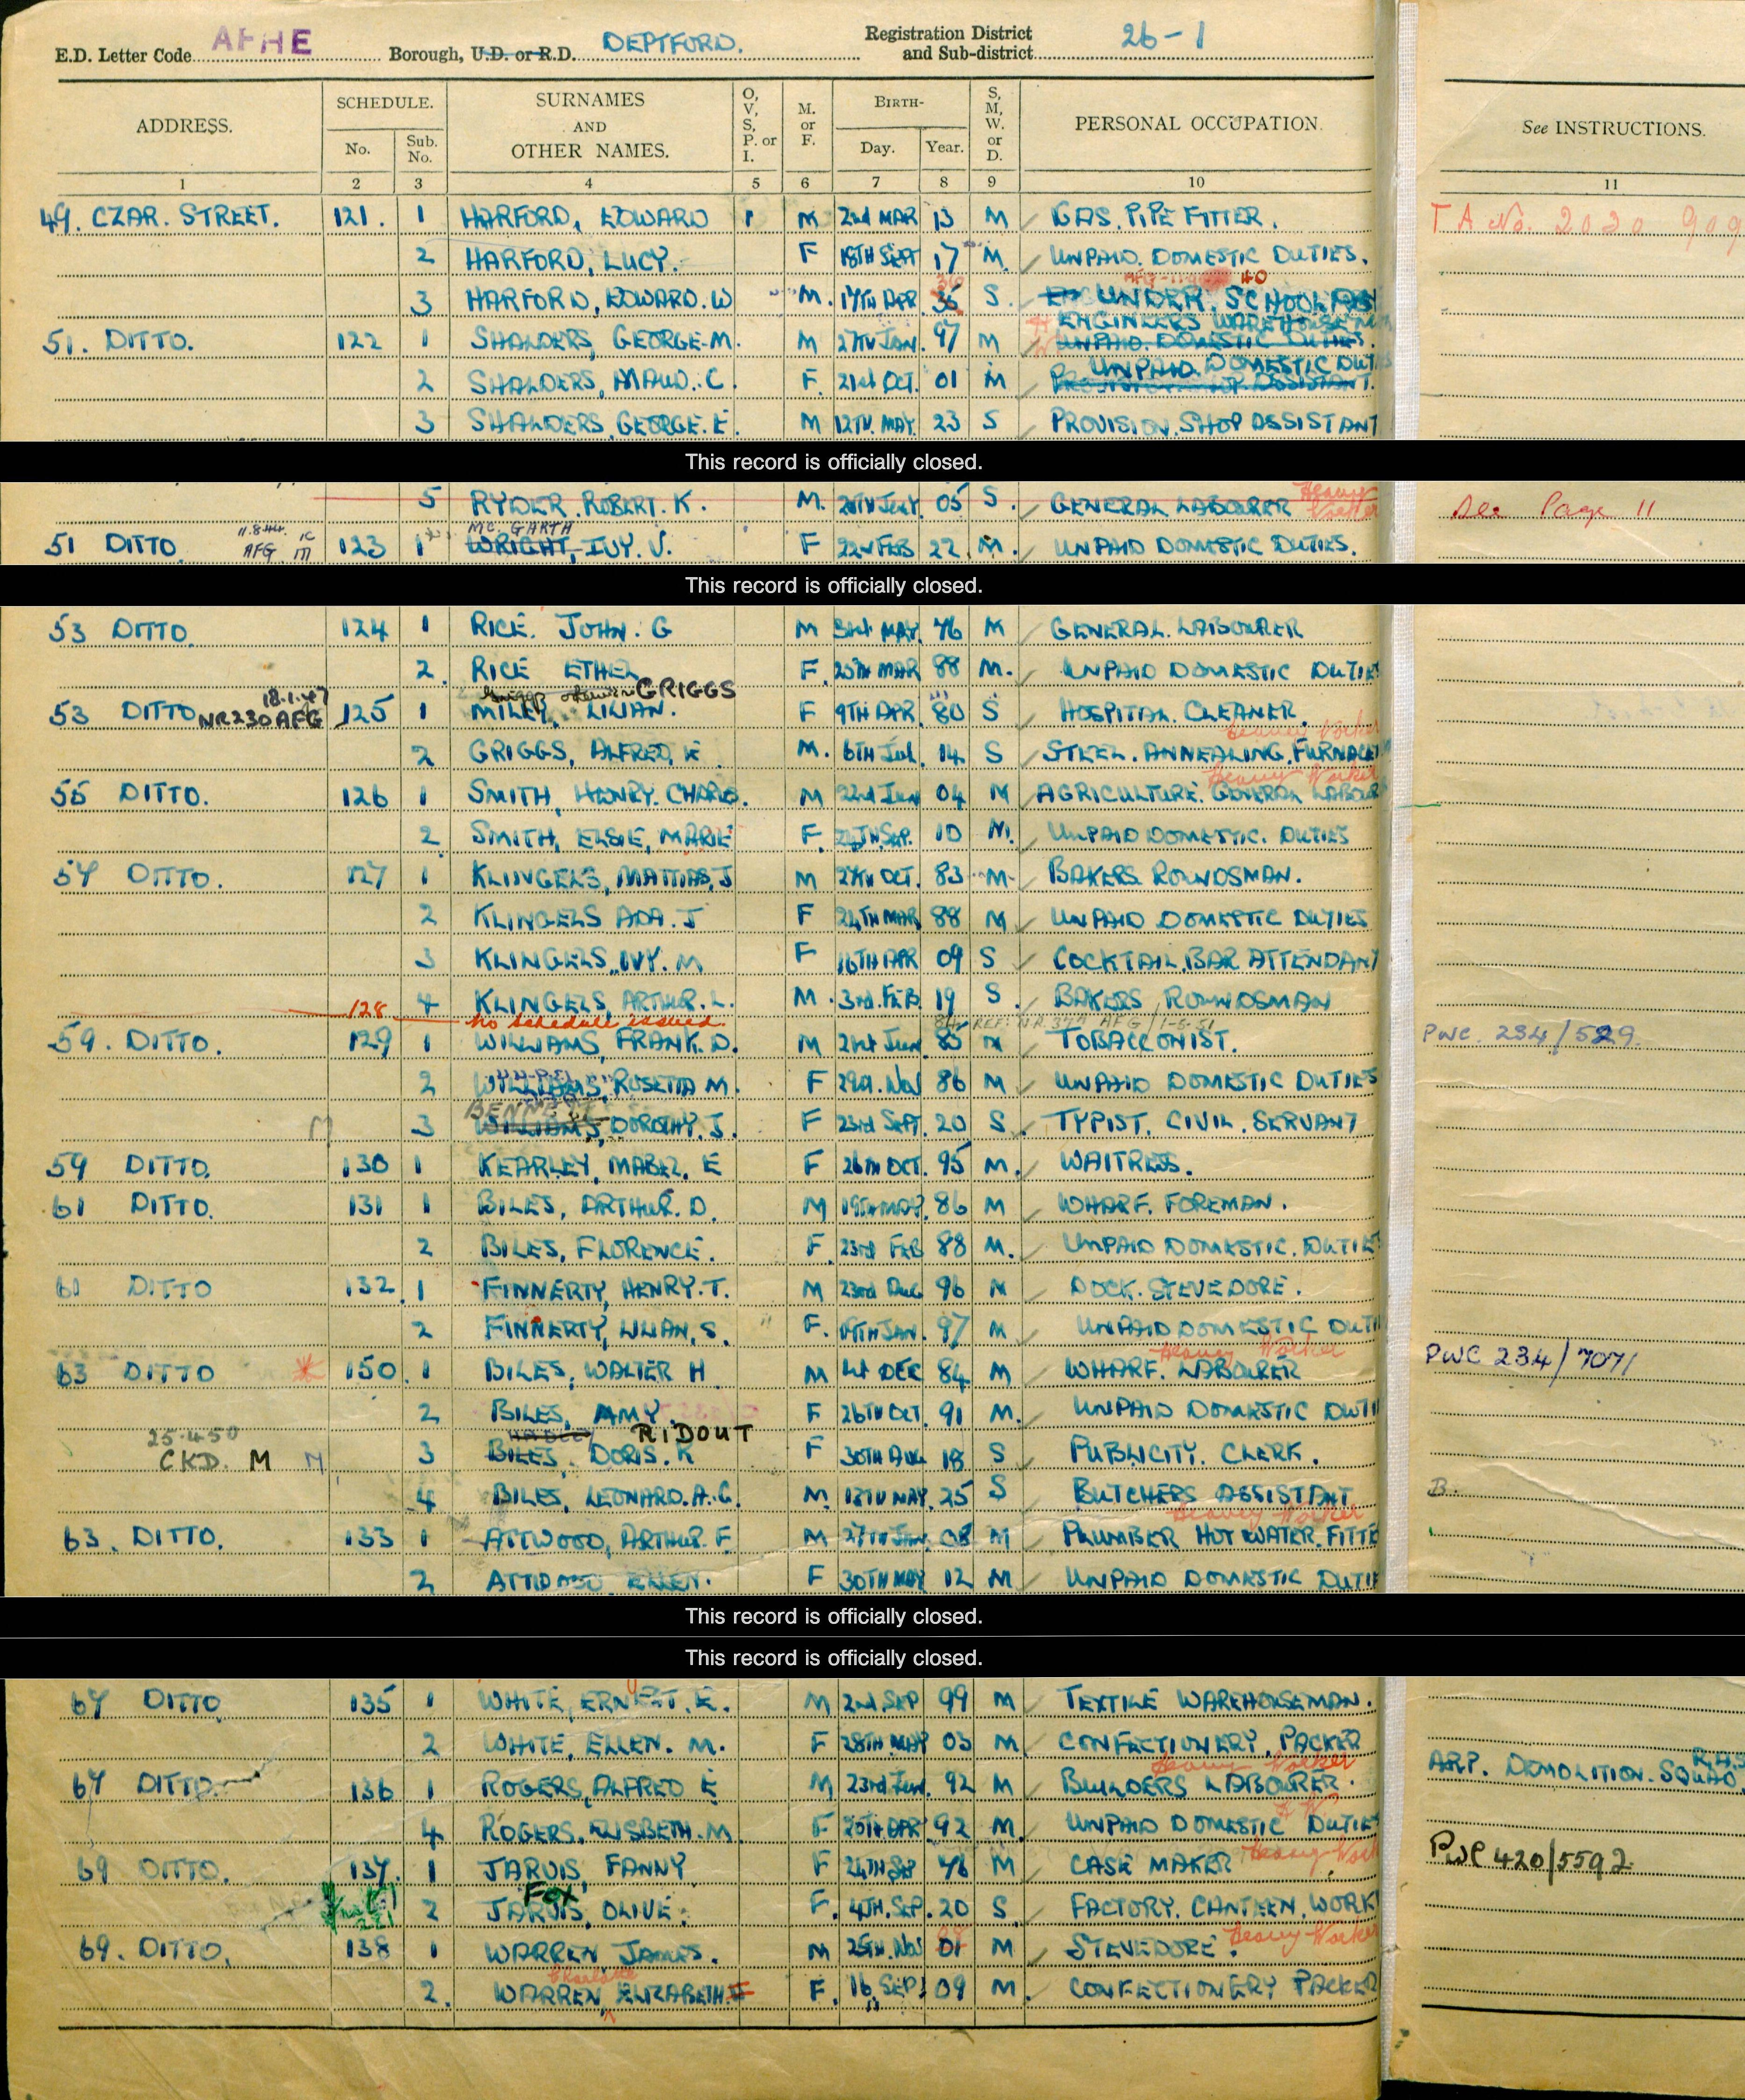 E.D. Letter Code AFHE Borough, U.D. or R.D. DEPTFORD. Registration District and Sub-district 26-1
ADDRESS. SCHEDULE. No. Sub. No. SURNAMES AND OTHER NAMES. O, V, S, P. or I. M. or F. BIRTH- Day. Year. S, M, W. or D. PERSONAL OCCUPATION. See INSTRUCTIONS.
1 2 3 4 5 6 7 8 9 10 11
49. CZAR. STREET. 121. 1 HARFORD, EDWARD M 2nd MAR 13 M GAS. PIPE FITTER. T A No. 2020 909
2 HARFORD, LUCY. F 18TH SEPT 17 M. UNPAID. DOMESTIC DUTIES.
3 HARFORD, EDWARD. W M. 17TH APR 36 S. UNDER SCHOOL AGE
ENGINEERS WAREHOUSE
51. DITTO. 122 1 SHALDERS, GEORGE. M. M 27TH JAN. 97 M UNPAID. DOMESTIC DUTIES.
UNPAID. DOMESTIC DUTI
2 SHALDERS, MAUD. C. F. 21st OCT. 01 M
3 SHALDERS, GEORGE. E. M 12TH. MAY. 23 S PROVISION. SHOP ASSISTANT
This record is officially closed.
5 RYDER. ROBERT. K. M. 05 S. GENERAL LABOURER Heavy Worker See Page 11
MC. GARTH
51 DITTO. 11.8.44. AFG M 123 1 WRIGHT, IVY. V. F 22nd FEB 22 M. UNPAID DOMESTIC DUTIES.
This record is officially closed.
53 DITTO. 124 1 RICE. JOHN. G M 31st MAY. 76 M GENERAL. LABOURER
2. RICE ETHEL F. 25TH MAR 88 M. UNPAID DOMESTIC DUTIE
18.1.47 Griggs otherwise GRIGGS
53 DITTO NR230 AFG 125 1 MILEY, LILIAN. F 9TH APR. 80 S HOSPITAL. CLEANER.
Heavy Worker
2 GRIGGS, ALFRED, E M. 6TH JUL. 14 S STEEL. ANNEALING, FURNACE
Heavy Worker
55 DITTO. 126 1 SMITH, HENRY. CHARLES. M 22nd JUN 04 M AGRICULTURE. GENERAL LABOUR
2 SMITH, ELSIE, MARIE F. SEP. 10 M. UNPAID DOMESTIC. DUTIES
57 DITTO. 127 1 KLINGELS, MATTIAS, J M 27TH OCT. 83 M BAKERS ROUNDSMAN.
2 KLINGELS ADA. J F 24TH MAR 88 M UNPAID DOMESTIC DUTIES
3 KLINGELS, IVY. M F 16TH APR 09 S COCKTAIL, BAR ATTENDANT
4 KLINGELS, ARTHUR. L. M. 3rd. FEB. 19 S. BAKERS ROUNDSMAN
128 no schedule issued. REF: NR. 377 AFG / 1-5-51
59. DITTO. 129 1 WILLIAMS, FRANK. D. M 21st Jun 85 M TOBACCONIST. PWC. 234/529.
2 WILLIAMS, ROSETTA M. F 29th. Nov 86 M UNPAID DOMESTIC DUTIES
BENNETT
M 3 WILLIAMS, DOROTHY. J. F 23rd SEPT. 20 S. TYPIST. CIVIL. SERVANT
59 DITTO. 130 1 KEARLEY, MABEL. E F 26TH OCT. 95 M. WAITRESS.
61 DITTO. 131 1 BILES, ARTHUR. D. M 19TH MAR. 86 M WHARF. FOREMAN.
2 BILES, FLORENCE. F. 23rd FEB 88 M. UNPAID DOMESTIC. DUTIE
61 DITTO 132. 1 FINNERTY, HENRY. T. M 23rd Dec 96 M DOCK. STEVEDORE.
2 FINNERTY, LILIAN, S. F. 19TH JAN. 97 M UNPAID DOMESTIC DUTI
Heavy Worker
63 DITTO 150. 1 BILES, WALTER H M 1st DEC 84 M WHARF. LABOURER PWC 234/7071
2 BILES, AMY. F 26TH OCT. 91 M. UNPAID DOMESTIC DUTI
25.4.50 RIDOUT
CKD. M M 3 BILES, DORIS. R F 30TH AUG 18 S PUBLICITY. CLERK.
4 BILES, LEONARD. A. G. M. 18TH MAY. 25 S BUTCHERS ASSISTANT B.
Heavy Worker
63. DITTO. 133 1 ATTWOOD, ARTHUR. F. M 27TH JAN. 08 M PLUMBER HOT WATER. FITTE
2 ATTWOOD ELLEN. F 30TH MAY 12 M UNPAID DOMESTIC DUTIE
This record is officially closed.
This record is officially closed.
67 DITTO. 135 1 WHITE, ERNEST. E. M 2nd SEP 99 M TEXTILE WAREHOUSEMAN.
2 WHITE, ELLEN. M. F 28TH MAY 03 M CONFECTIONERY, PACKER
Heavy Worker
67 DITTO. 136 1 ROGERS, ALFRED E M 23rd Jun. 92 M BUILDERS LABOURER. ARP. DEMOLITION. SQUAD.
4 ROGERS, ELISBETH. M. F 25TH APR. 92 M. UNPAID DOMESTIC DUTIE
69 DITTO. 137. 1 JARVIS, FANNY F 24TH SEP 76 M CASE MAKER Heavy Work PWC 420/5592
FOX
2 JARVIS, OLIVE. F. 4TH. SEP. 20 S. FACTORY. CANTEEN. WORK
69. DITTO. 138 1 WARREN, JAMES. M 25TH. Nov 01 M STEVEDORE. Heavy Worker
Charlotte
2. WARREN, ELIZABETH. F. 16 SEP. 09 M. CONFECTIONERY PACKER